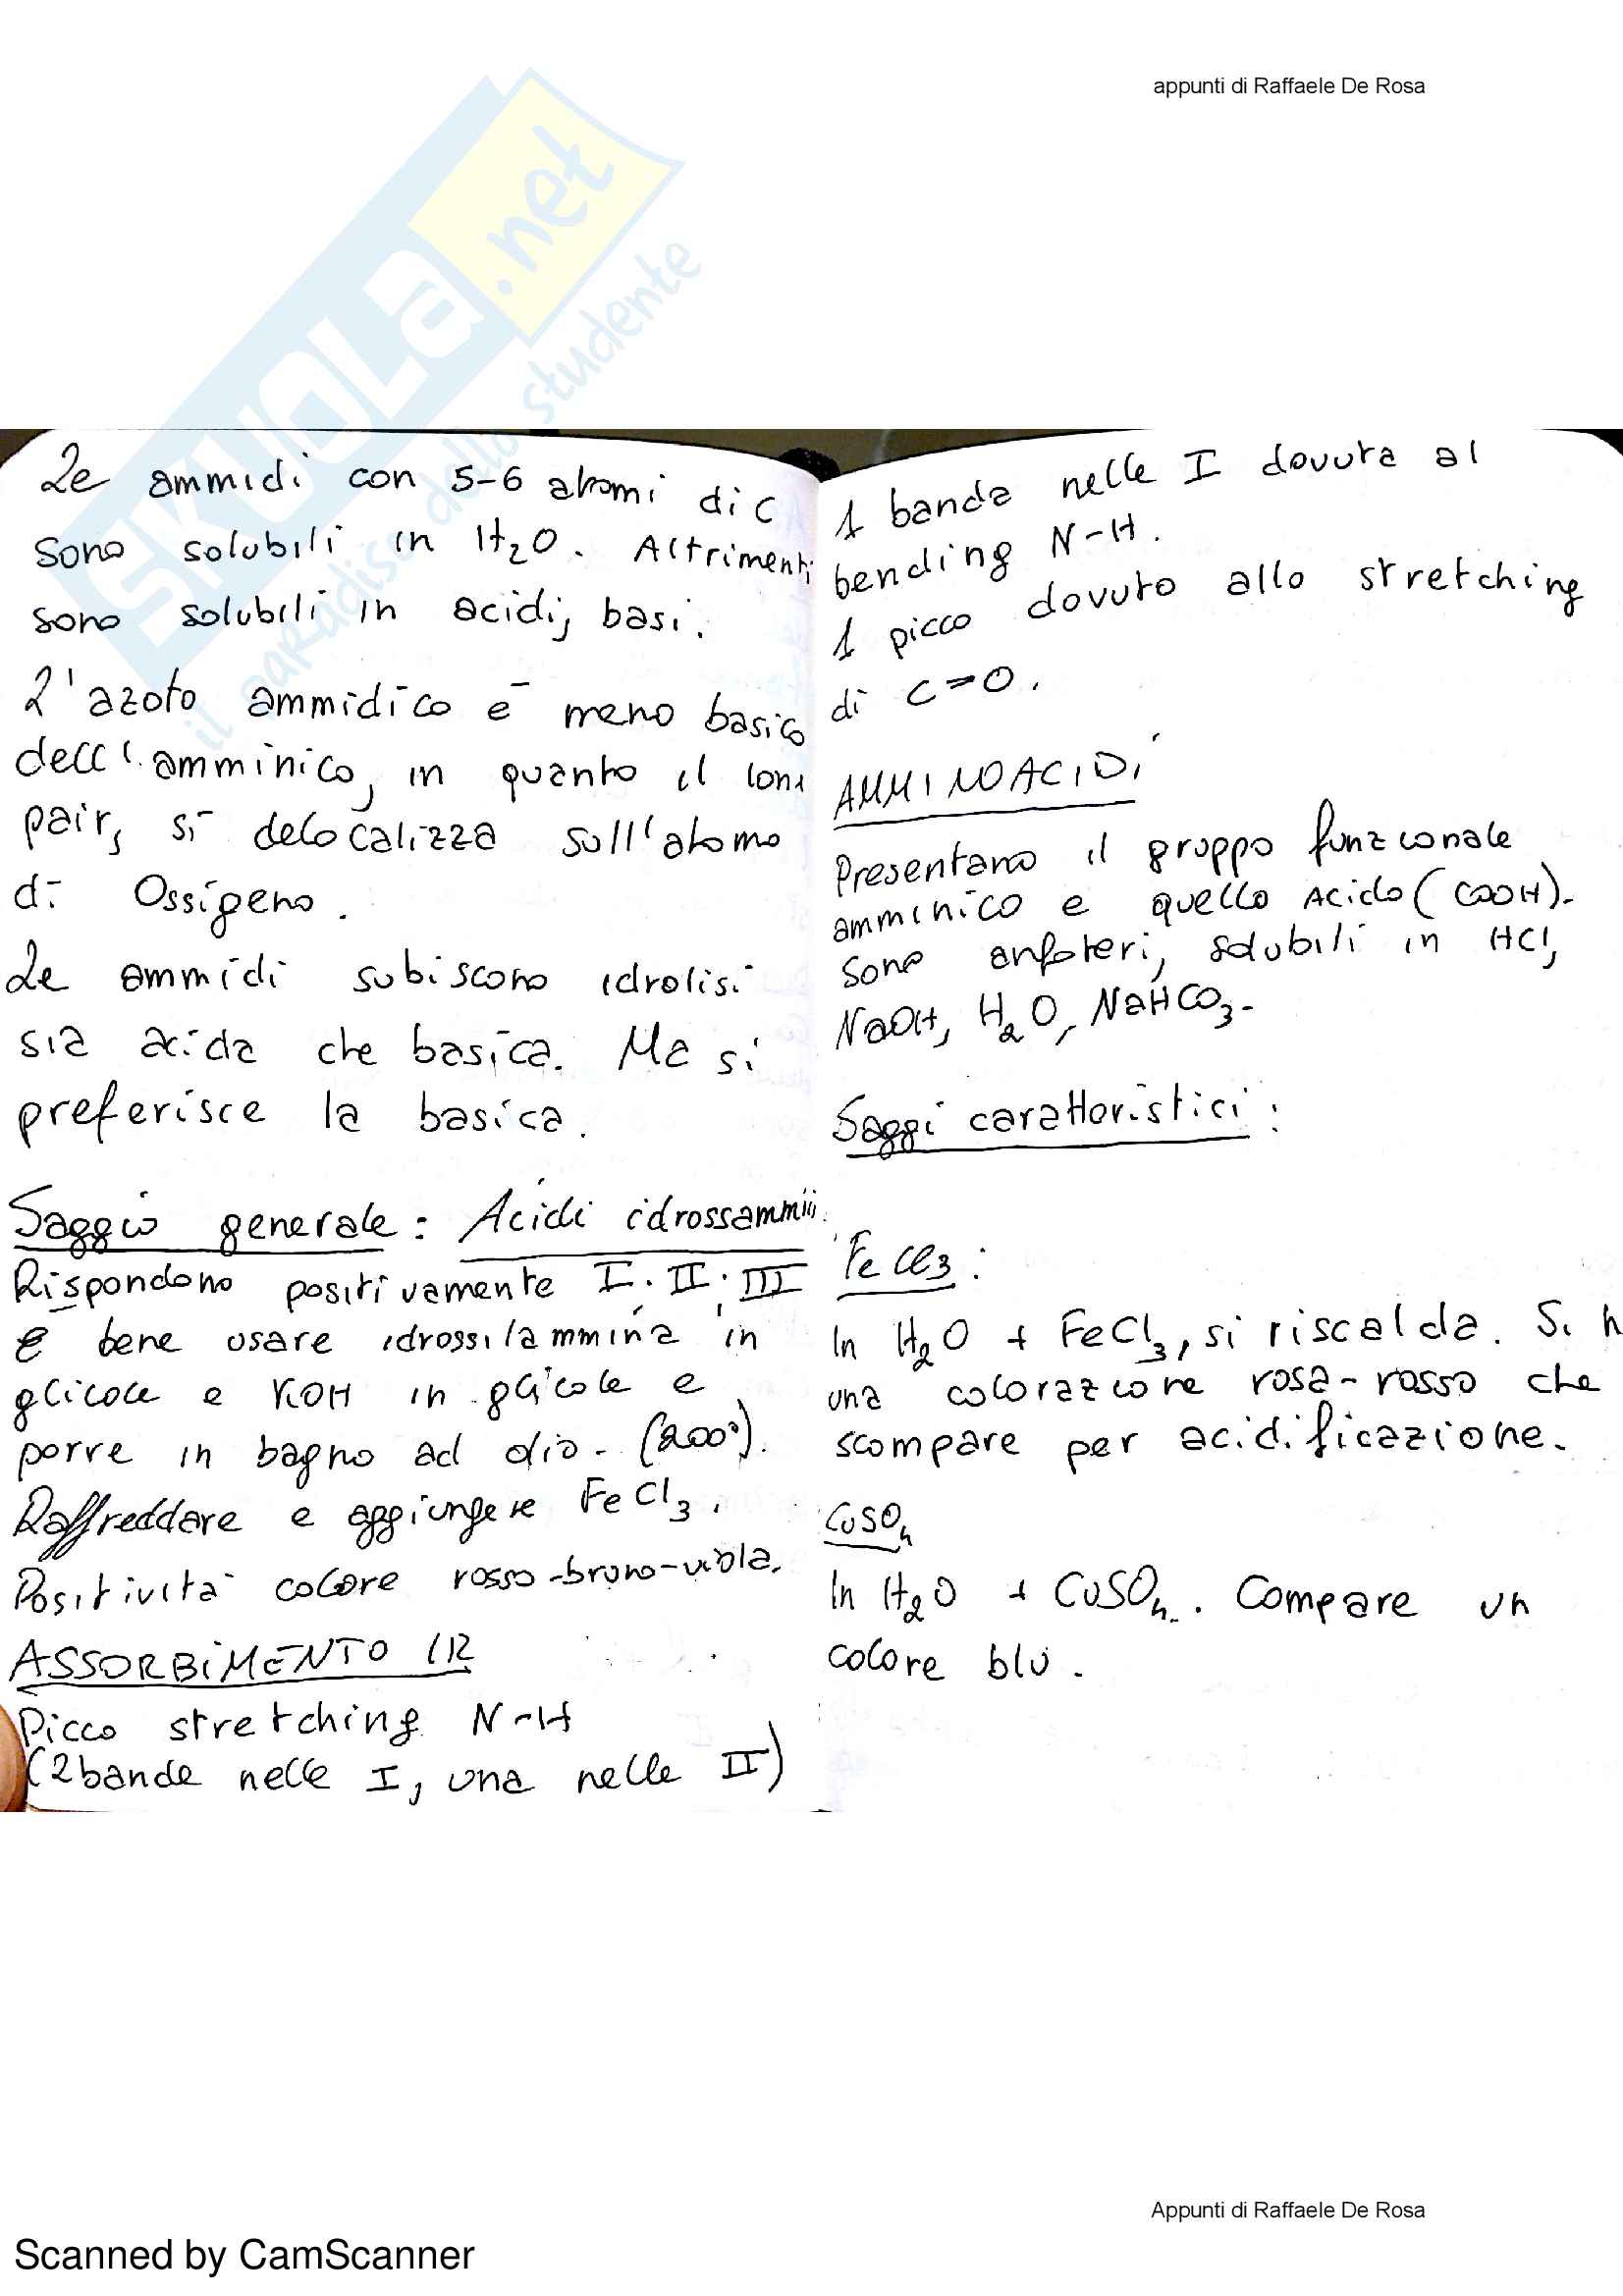 appunti di Raffaele De Rosa
SKUOLa.net
il paradiso dello studente
Le ammidi con 5-6 atomi di C
sono solubili in H₂O. Altrimenti
sono solubili in acidi, basi.
L'azoto ammidico è meno basico
dell'amminico, in quanto il lone
pair, si delocalizza sull'atomo
di Ossigeno.
Le ammidi subiscono idrolisi
sia acida che basica. Ma si
preferisce la basica.
Saggio generale: Acidi idrossammi
Rispondono positivamente I, II, III
È bene usare idrossilammina in
glicole e KOH in glicole e
porre in bagno ad olio. (200°).
Raffreddare e aggiungere FeCl₃.
Positività colore rosso-bruno-viola.
ASSORBIMENTO IR
Picco stretching N-H
(2 bande nelle I, una nelle II)
1 banda nelle I dovuta al
bending N-H.
1 picco dovuto allo stretching
di C=O.
AMMINOACIDI
Presentano il gruppo funzionale
amminico e quello Acido (COOH).
Sono anfoteri, solubili in HCl,
NaOH, H₂O, NaHCO₃.
Saggi caratteristici:
FeCl₃:
In H₂O + FeCl₃, si riscalda. Si h
una colorazione rosa-rosso che
scompare per acidificazione.
CuSO₄
In H₂O + CuSO₄. Compare un
colore blu.
Appunti di Raffaele De Rosa
Scanned by CamScanner